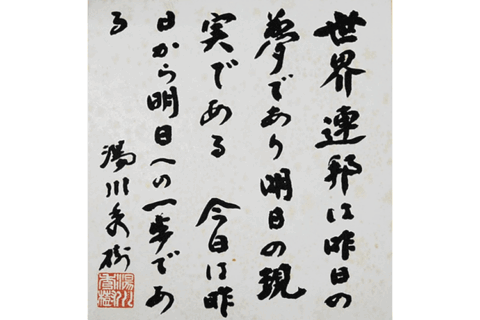 世界連邦は昨日の
夢であり明日の現
実である 今日は昨
日から明日への一歩であ
る
湯川秀樹
湯川秀樹